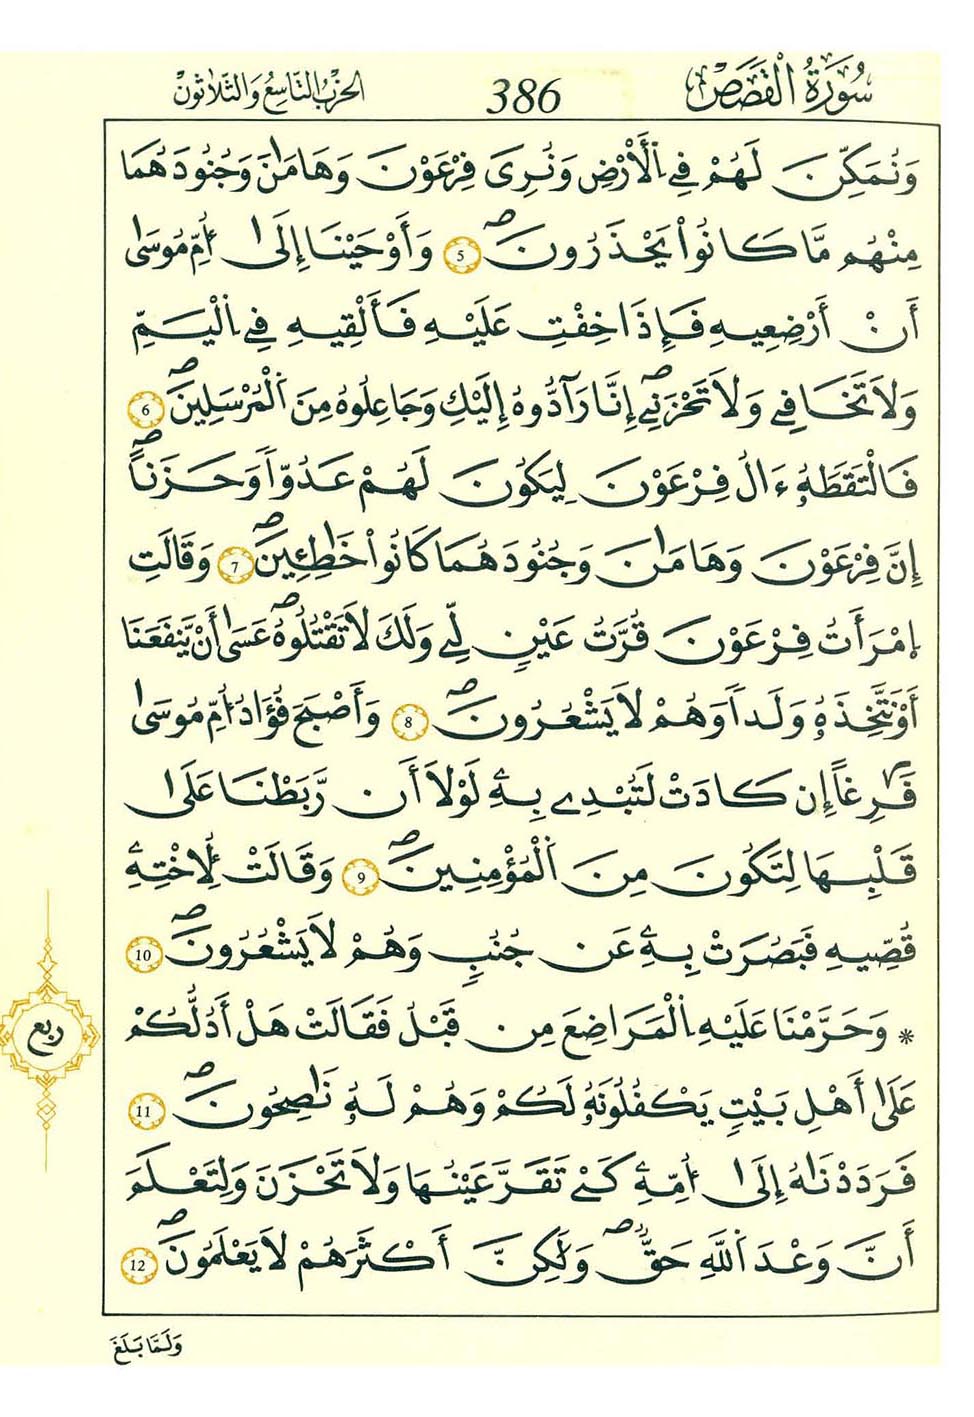 سُورَةُ الْقَصَصِ 386 الحِزْبُ التَّاسِعُ وَالثَّلَاثُونَ
وَنُمَكِّنَ لَهُمْ فِي اِ۬لَارْضِ وَنُرِيَ فِرْعَوْنَ وَهَٰمَٰنَ وَجُنُودَهُمَا
مِنْهُم مَّا كَانُواْ يَحْذَرُونَۖ 5 وَأَوْحَيْنَا إِلَىٰ أُمِّ مُوسَىٰ
أَنَ اَرْضِعِيهِ فَإِذَا خِفْتِ عَلَيْهِ فَأَلْقِيهِ فِي اِ۬لْيَمِّ
وَلَا تَخَافِي وَلَا تَحْزَنِيۖ إِنَّا رَآدُّوهُ إِلَيْكِ وَجَاعِلُوهُ مِنَ اَ۬لْمُرْسَلِينَۖ 6
فَالْتَقَطَهُۥ ءَالُ فِرْعَوْنَ لِيَكُونَ لَهُمْ عَدُوّاٗ وَحَزَناًۖ
إِنَّ فِرْعَوْنَ وَهَامَٰنَ وَجُنُودَهُمَا كَانُواْ خَٰطِـِٕينَۖ 7 وَقَالَتِ
اِ۪مْرَأَتُ فِرْعَوْنَ قُرَّتُ عَيْنٖ لِّي وَلَكَ لَا تَقْتُلُوهُۖ عَسَىٰ أَنْ يَّنفَعَنَا
أَوْ نَتَّخِذَهُۥ وَلَداٗ وَهُمْ لَا يَشْعُرُونَۖ 8 وَأَصْبَحَ فُؤَادُ أُمِّ مُوسَىٰ
فَٰرِغاً إِن كَادَتْ لَتُبْدِي بِهِۦ لَوْلَا أَن رَّبَطْنَا عَلَىٰ
قَلْبِهَا لِتَكُونَ مِنَ اَ۬لْمُؤْمِنِينَۖ 9 وَقَالَتْ لِأُخْتِهِۦ
قُصِّيهِ فَبَصُرَتْ بِهِۦ عَن جُنُبٖ وَهُمْ لَا يَشْعُرُونَۖ 10
* وَحَرَّمْنَا عَلَيْهِ اِ۬لْمَرَاضِعَ مِن قَبْلُ فَقَالَتْ هَلَ اَدُلُّكُمْ
عَلَىٰ أَهْلِ بَيْتٖ يَكْفُلُونَهُۥ لَكُمْ وَهُمْ لَهُۥ نَٰصِحُونَۖ 11
فَرَدَدْنَٰهُ إِلَىٰ أُمِّهِۦ كَيْ تَقَرَّ عَيْنُهَا وَلَا تَحْزَنَ وَلِتَعْلَمَ
أَنَّ وَعْدَ اَ۬للَّهِ حَقّٞۖ وَلَٰكِنَّ أَكْثَرَهُمْ لَا يَعْلَمُونَۖ 12
ربع
وَلَمَّا بَلَغَ